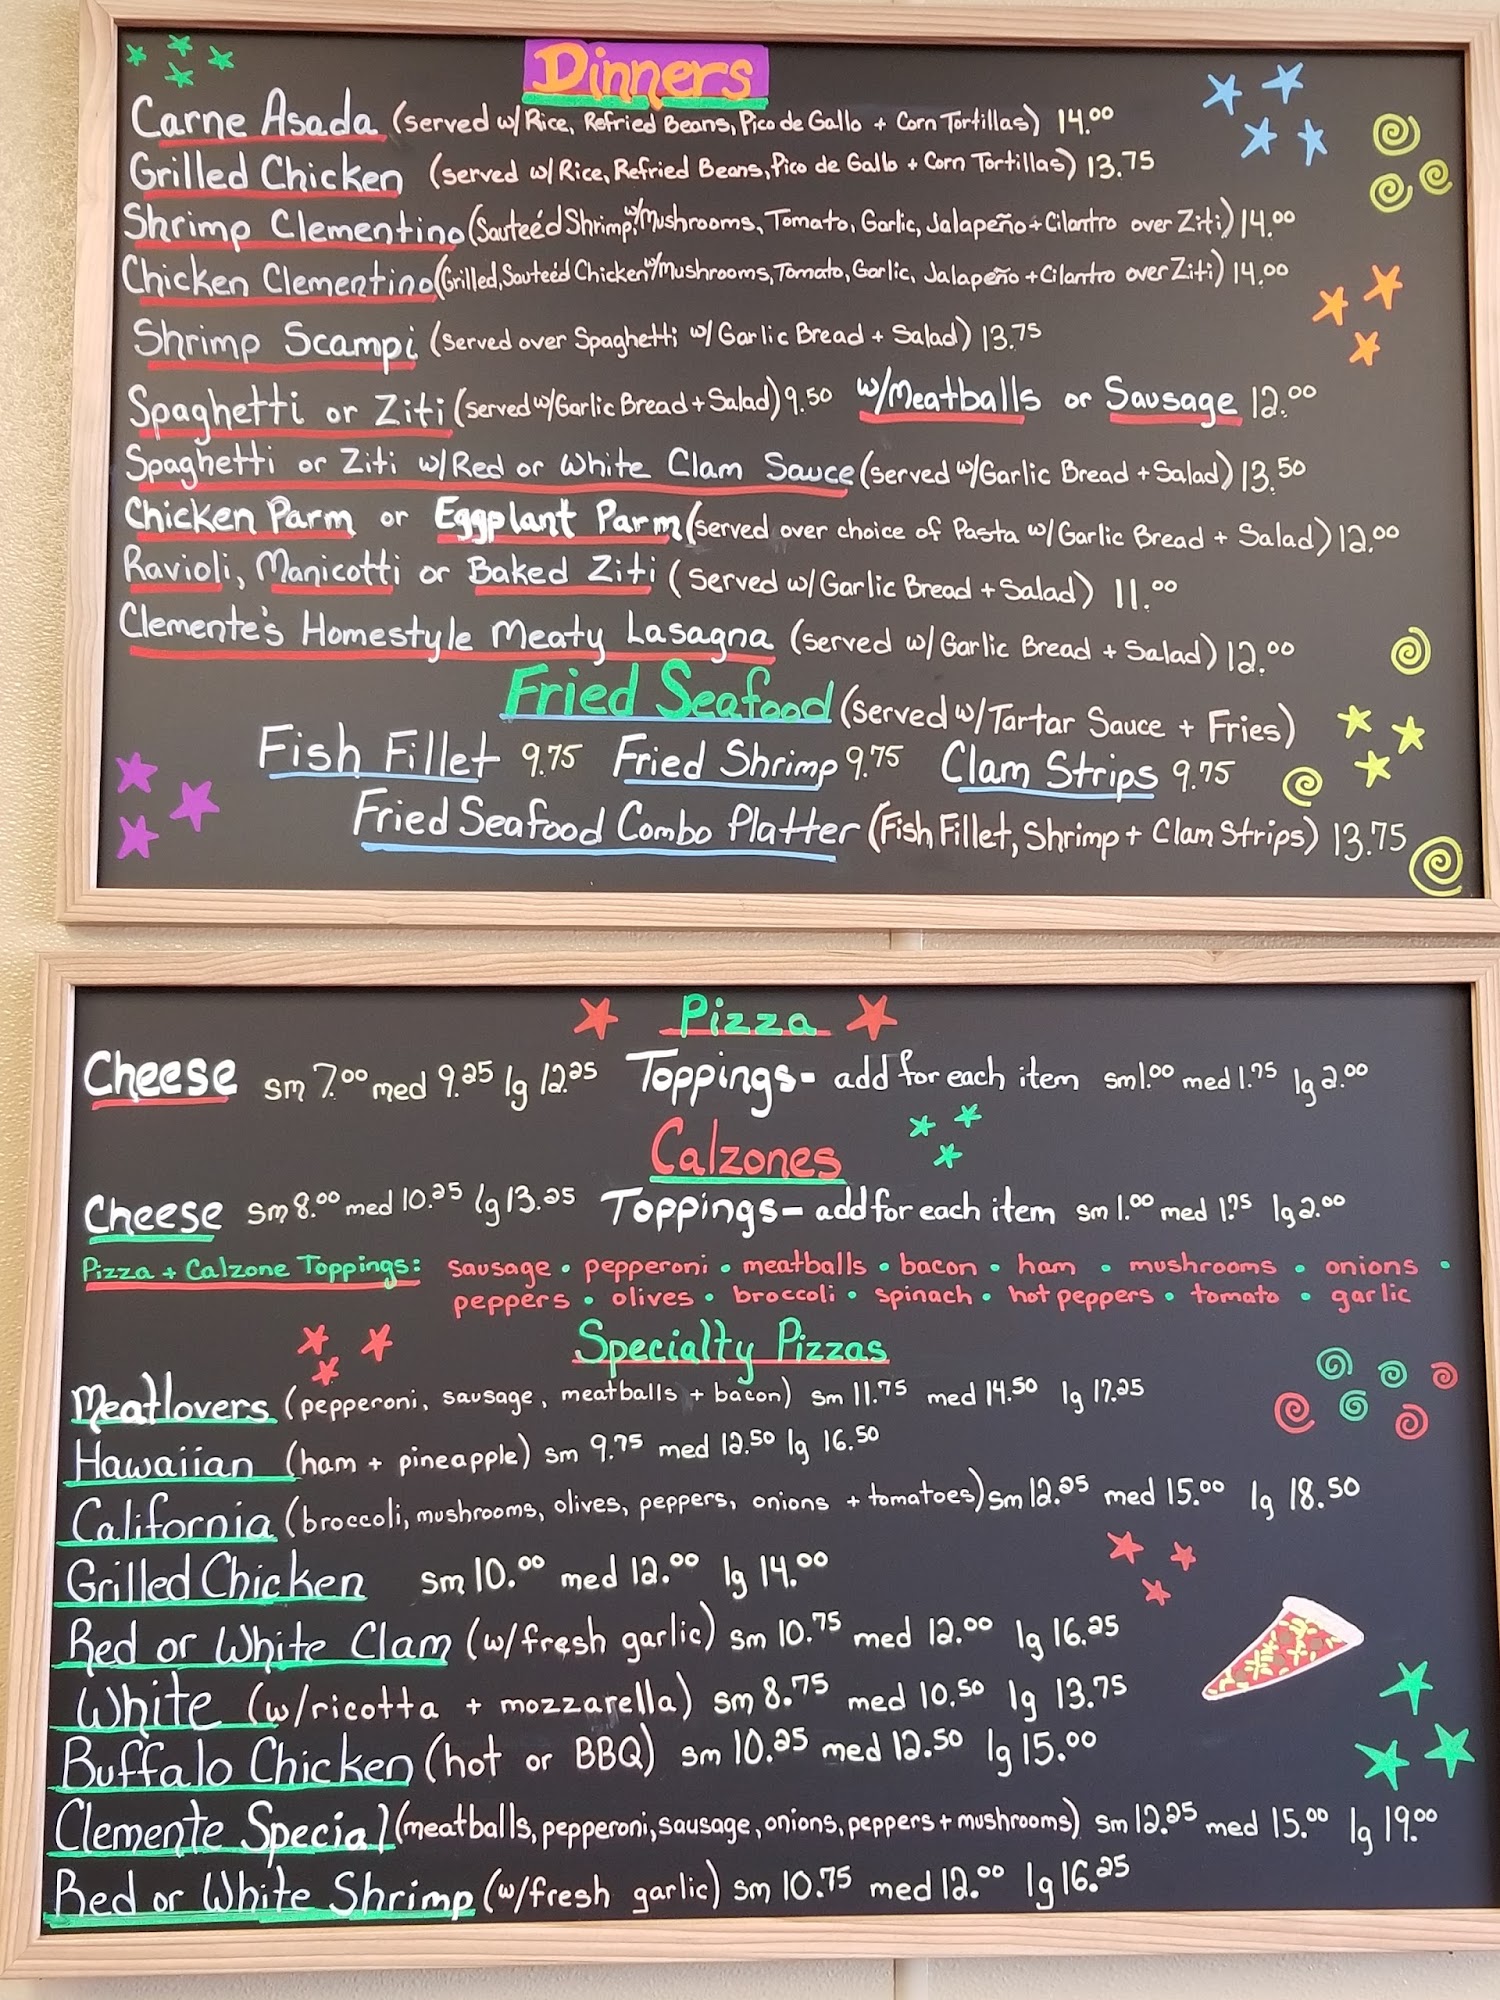 Dinners
Carne Asada (served w/ Rice, Refried Beans, Pico de Gallo + Corn Tortillas) 14.00
Grilled Chicken (served w/ Rice, Refried Beans, Pico de Gallo + Corn Tortillas) 13.75
Shrimp Clementino (Sauteéd Shrimp w/ Mushrooms, Tomato, Garlic, Jalapeño + Cilantro over Ziti) 14.00
Chicken Clementino (Grilled, Sauteéd Chicken w/ Mushrooms, Tomato, Garlic, Jalapeño + Cilantro over Ziti) 14.00
Shrimp Scampi (Served over Spaghetti w/ Garlic Bread + Salad) 13.75
Spaghetti or Ziti (served w/ Garlic Bread + Salad) 9.50 w/Meatballs or Sausage 12.00
Spaghetti or Ziti w/Red or White Clam Sauce (served w/Garlic Bread + Salad) 13.50
Chicken Parm or Eggplant Parm (served over choice of Pasta w/ Garlic Bread + Salad) 12.00
Ravioli, Manicotti or Baked Ziti (Served w/ Garlic Bread + Salad) 11.00
Clemente's Homestyle Meaty Lasagna (served w/ Garlic Bread + Salad) 12.00
Fried Seafood (served w/Tartar Sauce + Fries)
Fish Fillet 9.75 Fried Shrimp 9.75 Clam Strips 9.75
Fried Seafood Combo Platter (Fish Fillet, Shrimp + Clam Strips) 13.75
Pizza
Cheese sm 7.00 med 9.25 lg 12.25 Toppings- add for each item sm 1.00 med 1.75 lg 2.00
Calzones
Cheese sm 8.00 med 10.25 lg 13.25 Toppings- add for each item sm 1.00 med 1.75 lg 2.00
Pizza + Calzone Toppings: sausage • pepperoni • meatballs • bacon • ham • mushrooms • onions •
peppers • olives • broccoli • spinach • hot peppers • tomato • garlic
Specialty Pizzas
Meatlovers (pepperoni, sausage, meatballs + bacon) sm 11.75 med 14.50 lg 17.25
Hawaiian (ham + pineapple) sm 9.75 med 12.50 lg 16.50
California (broccoli, mushrooms, olives, peppers, onions + tomatoes) sm 12.25 med 15.00 lg 18.50
Grilled Chicken sm 10.00 med 12.00 lg 14.00
Red or White Clam (w/fresh garlic) sm 10.75 med 12.00 lg 16.25
White (w/ricotta + mozzarella) sm 8.75 med 10.50 lg 13.75
Buffalo Chicken (hot or BBQ) sm 10.25 med 12.50 lg 15.00
Clemente Special (meatballs, pepperoni, sausage, onions, peppers + mushrooms) sm 12.25 med 15.00 lg 19.00
Red or White Shrimp (w/fresh garlic) sm 10.75 med 12.00 lg 16.25